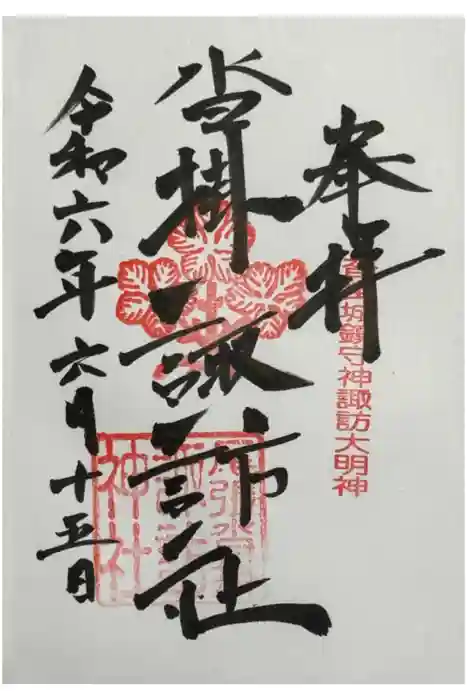 奉拝
城鎮守神諏訪大明神
沓掛諏訪社
尾張
神社
令和六年六月十五日